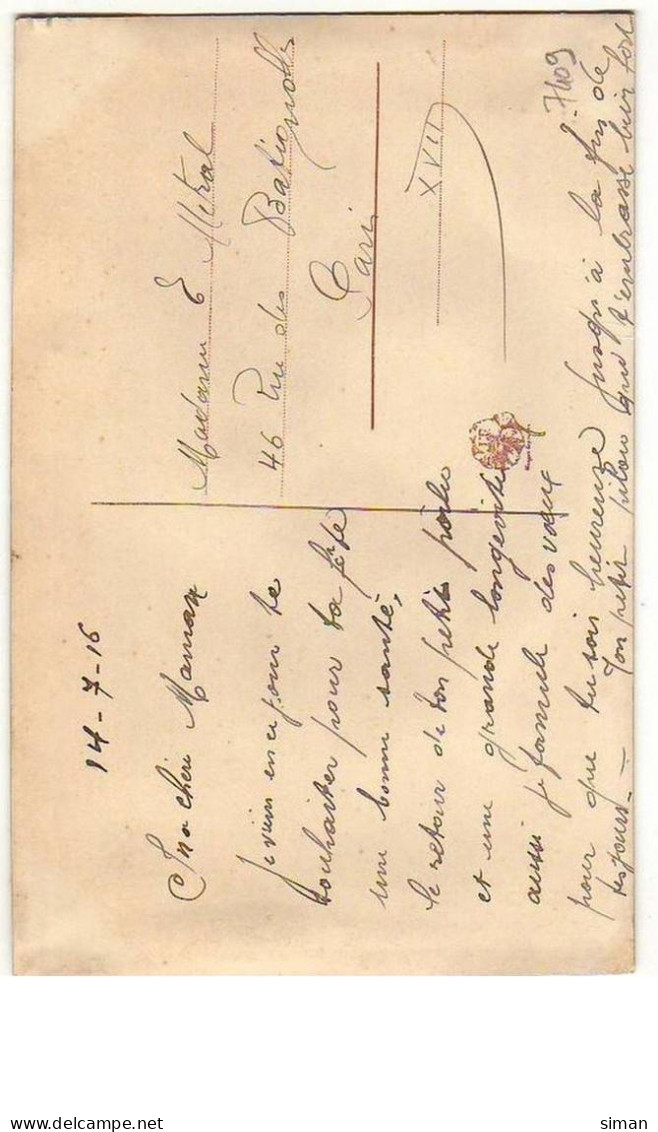 14-7-16
Ma chéri Maman
Je viens en ce jour te
souhaiter pour ta fête
une bonne santé,
le retour de ton petit poilu
et une grande longévité
aussi je formule des vœux
pour que tu sois heureuse jusqu'à la fin de
tes jours. —
Ton petit pilou qui t'embrasse bien fort
Madame E Métral
46 Rue des Batignolles
Paris
XVII
7409
siman